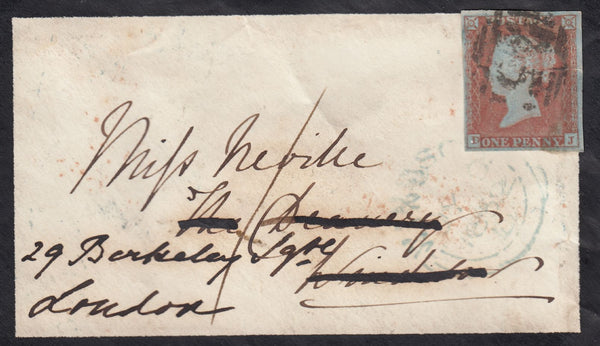 POSTAGE
ONE PENNY
J
Miss Neville
The Deanery
29 Berkeley Sqre
Windsor
London